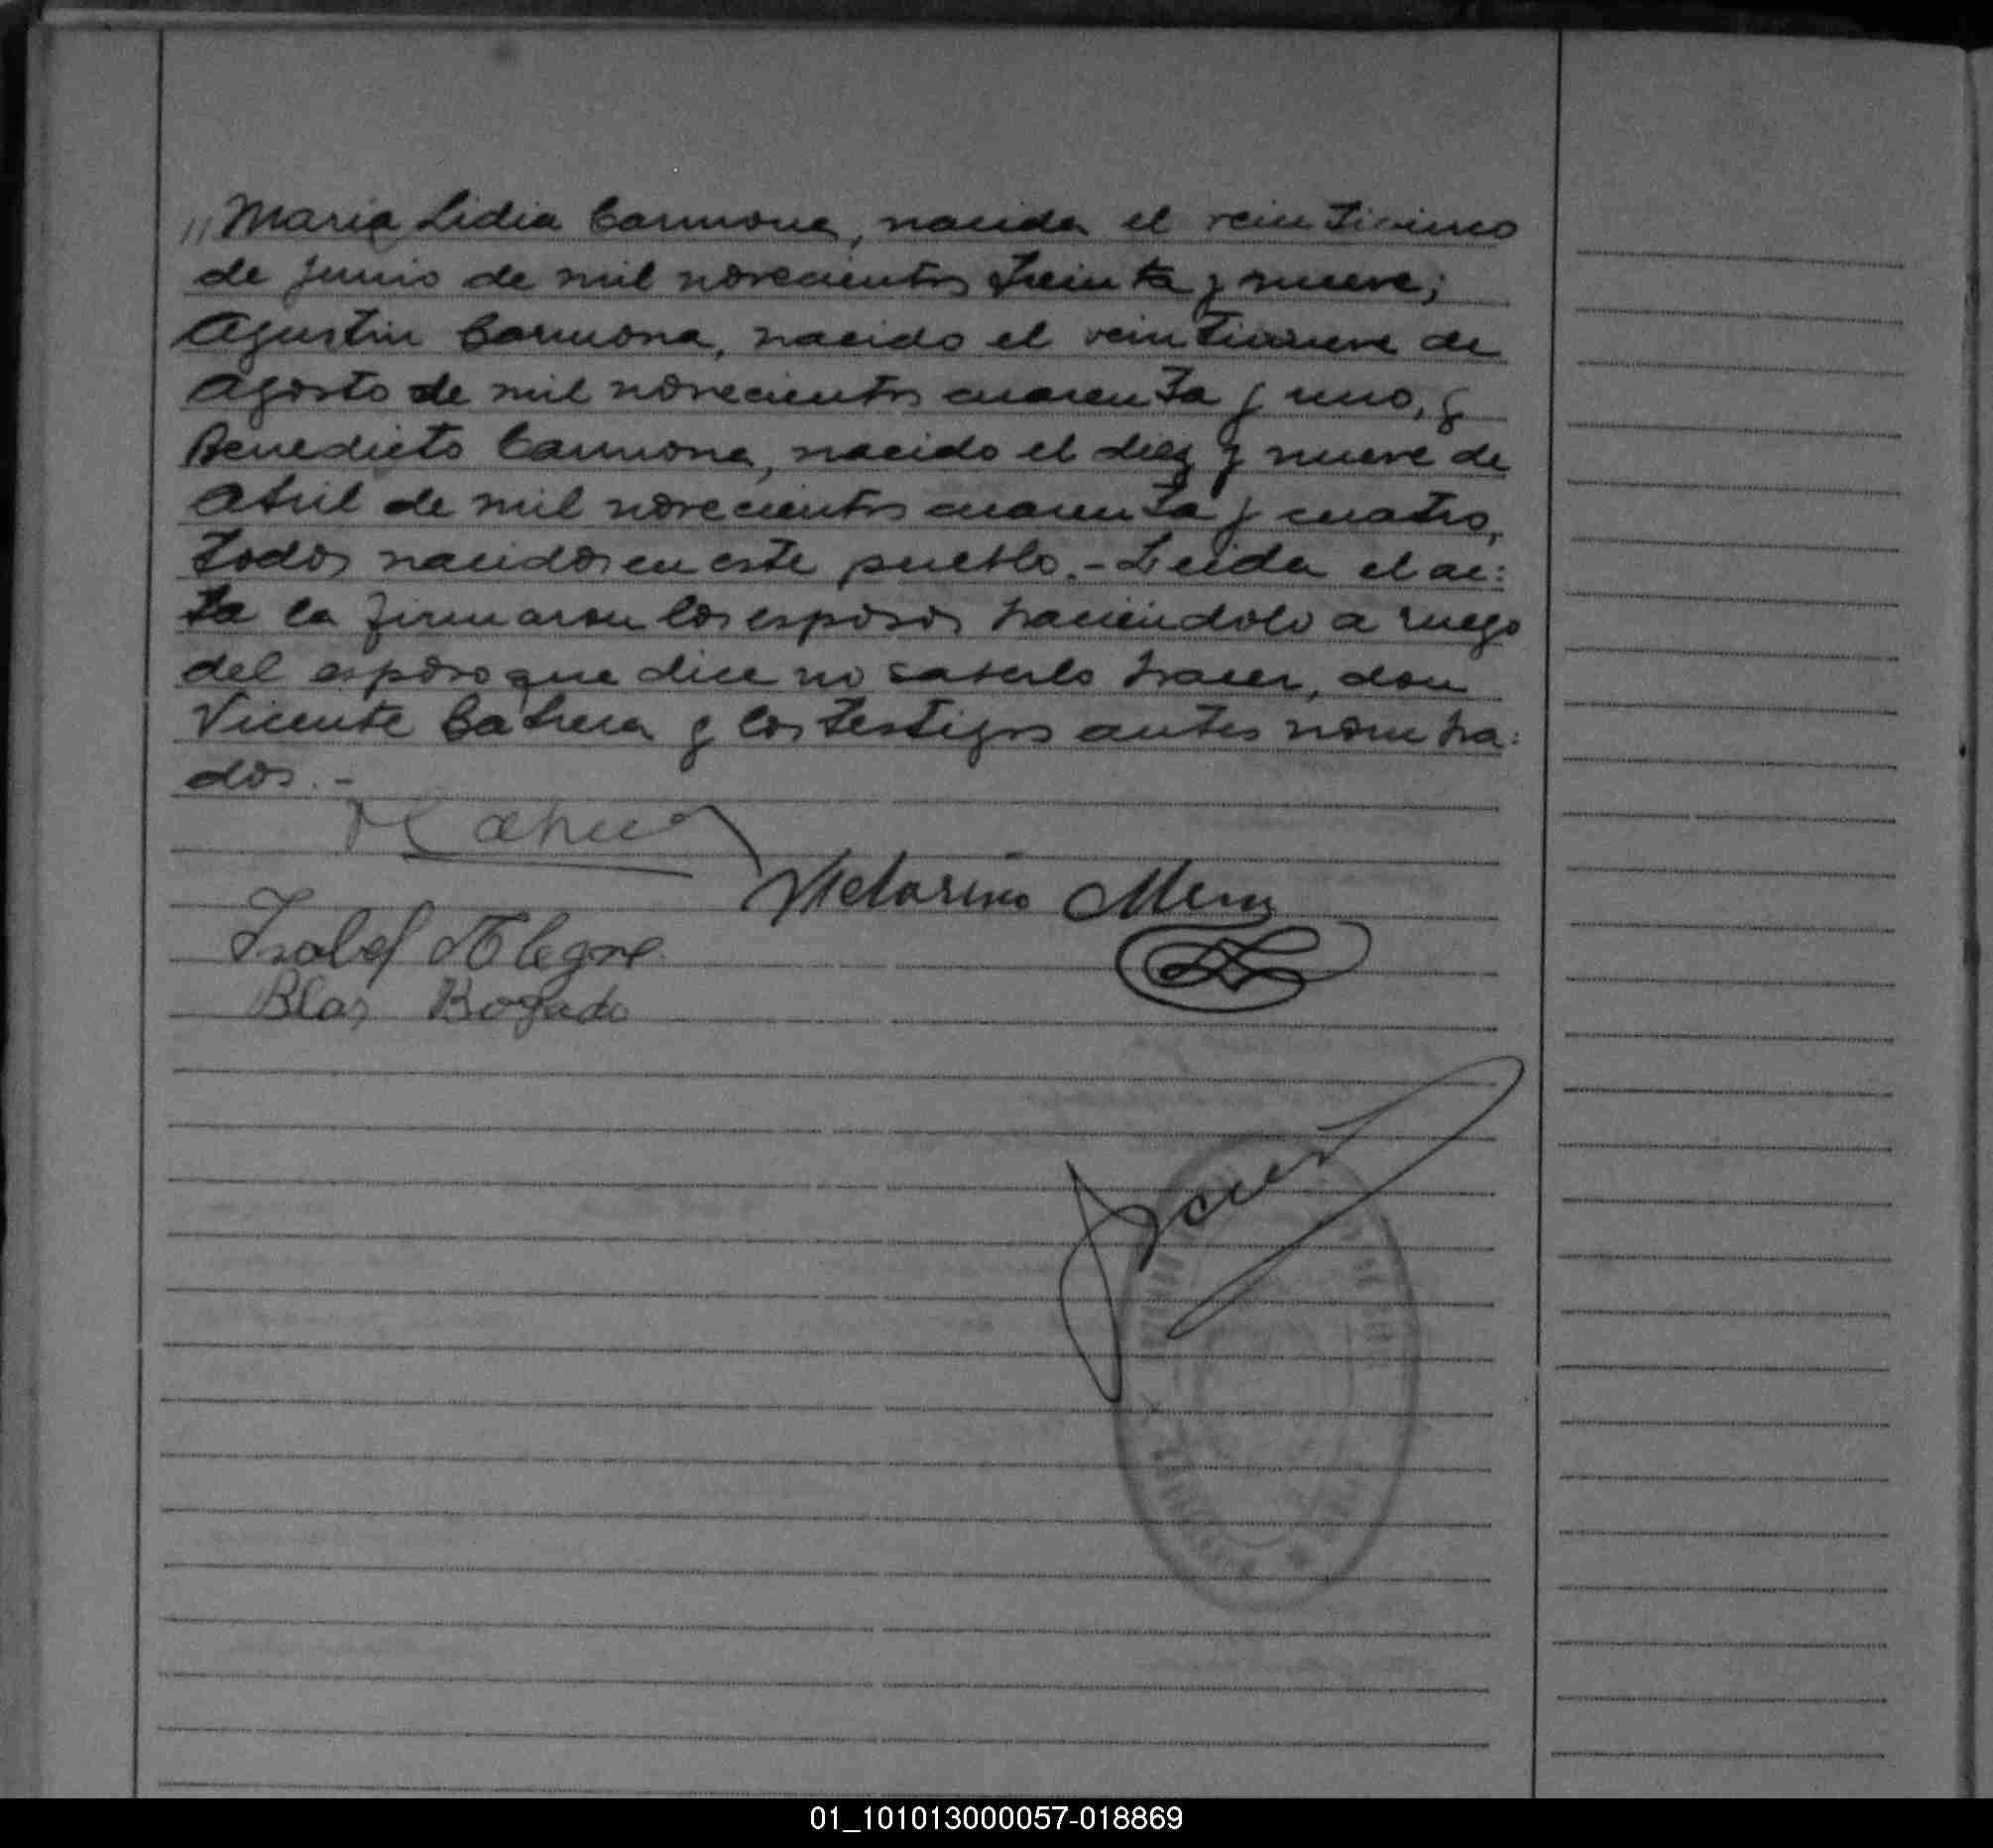 "Maria Lidia Carmona, nacida el veinticinco
de junio de mil novecientos treinta y nueve;
Agustin Carmona, nacido el veintinueve de
Agosto de mil novecientos cuarenta y uno, y
Benedicto Carmona, nacido el diez y nueve de
Abril de mil novecientos cuarenta y cuatro,
todos nacidos en este pueblo.- Leida el ac:
ta la firmaron los esposos haciéndolo a ruego
del esposo que dice no saberlo hacer, don
Vicente Cabrera y los testigos antes nombra:
dos.-
Victorino Mena
Isabel Alegre
Blas Bogado
01_101013000057-018869